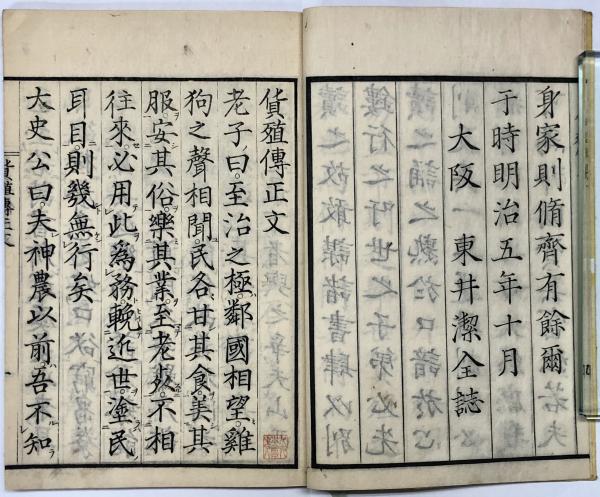 身家則脩齊有餘爾
于時明治五年十月
大阪 東井潔全誌
貨殖傳正文
老子曰。至治之極。鄰國相望。雞
狗之聲相聞。民各甘其食。美其
服。安其俗。樂其業。至老死。不相
往來。必用此爲務。輓近世。塗民
耳目。則幾無行矣
大史公曰。夫神農以前。吾不知
貨殖傳正文